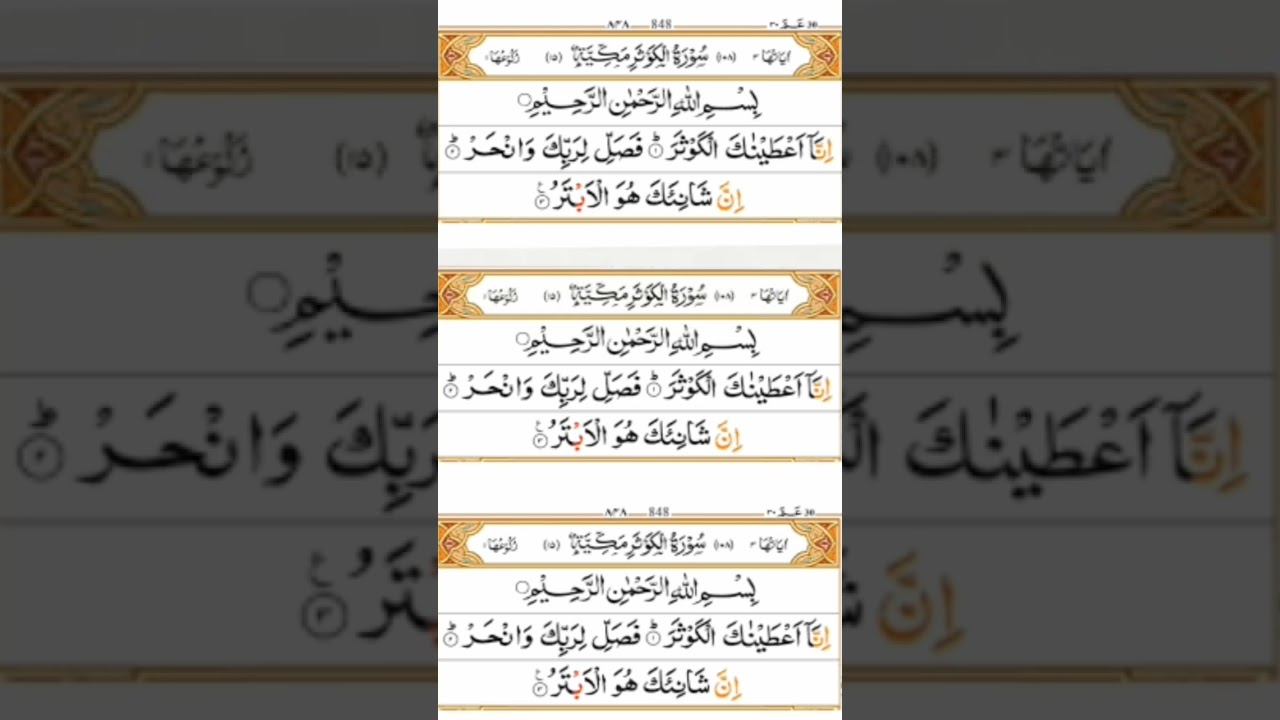 عـم ٣٠ 30 848 ٨٤٨
اٰيَاتُهَا ٣ (١٠٨) سُوْرَةُ الْكَوْثَرِ مَكِّيَّةٌ (١٥) رُكُوْعُهَا ١
بِسْمِ اللّٰهِ الرَّحْمٰنِ الرَّحِيْمِ
اِنَّاۤ اَعْطَيْنٰكَ الْكَوْثَرَؕ ۝١ فَصَلِّ لِرَبِّكَ وَانْحَرْؕ ۝٢
اِنَّ شَانِئَكَ هُوَ الْاَبْتَرُ ۝٣
اٰيَاتُهَا ٣ (١٠٨) سُوْرَةُ الْكَوْثَرِ مَكِّيَّةٌ (١٥) رُكُوْعُهَا ١
بِسْمِ اللّٰهِ الرَّحْمٰنِ الرَّحِيْمِ
اِنَّاۤ اَعْطَيْنٰكَ الْكَوْثَرَؕ ۝١ فَصَلِّ لِرَبِّكَ وَانْحَرْؕ ۝٢
اِنَّ شَانِئَكَ هُوَ الْاَبْتَرُ ۝٣
عـم ٣٠ 30 848 ٨٤٨
اٰيَاتُهَا ٣ (١٠٨) سُوْرَةُ الْكَوْثَرِ مَكِّيَّةٌ (١٥) رُكُوْعُهَا ١
بِسْمِ اللّٰهِ الرَّحْمٰنِ الرَّحِيْمِ
اِنَّاۤ اَعْطَيْنٰكَ الْكَوْثَرَؕ ۝١ فَصَلِّ لِرَبِّكَ وَانْحَرْؕ ۝٢
اِنَّ شَانِئَكَ هُوَ الْاَبْتَرُ ۝٣